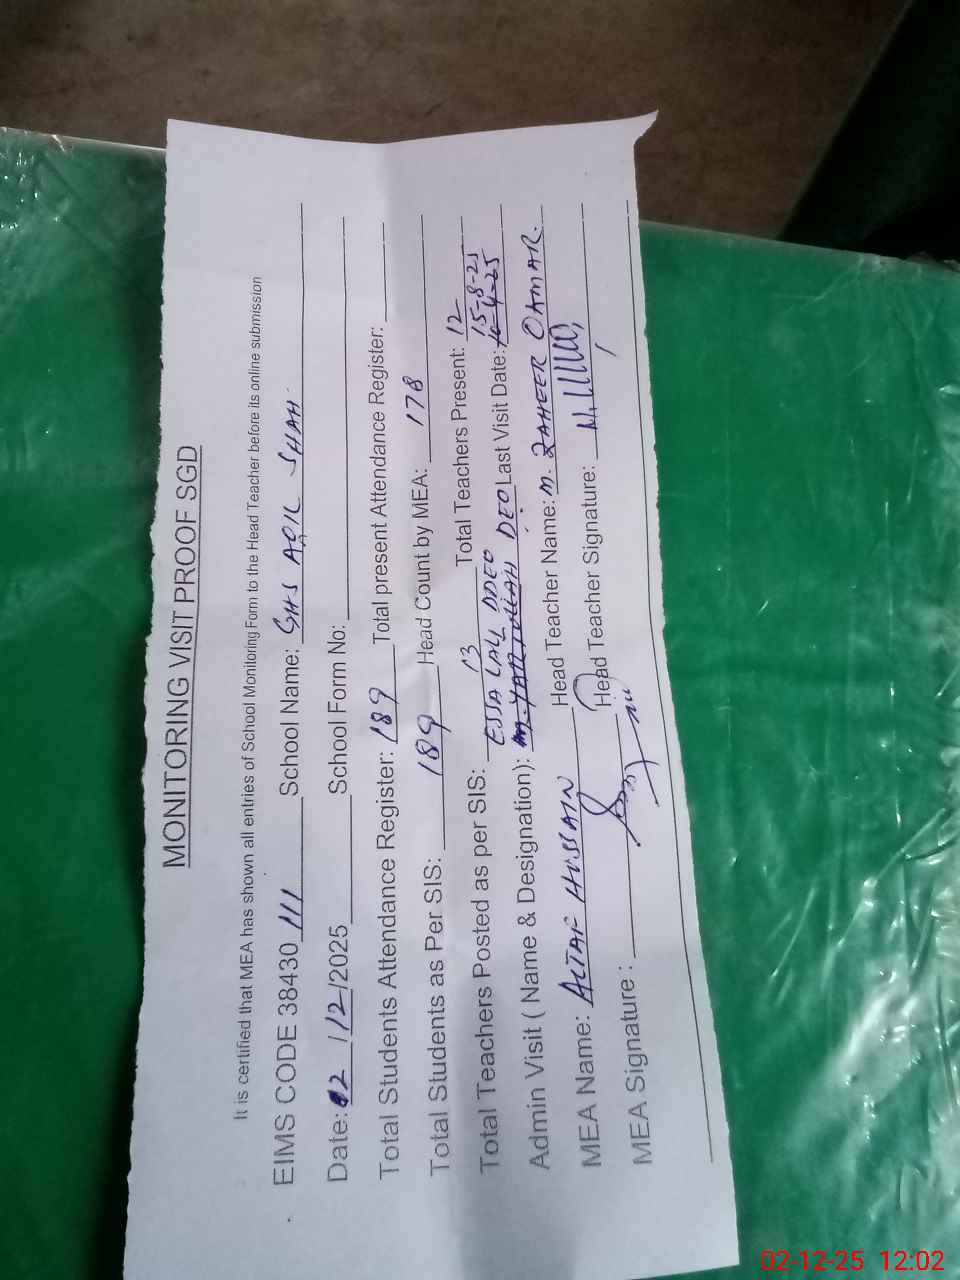 MONITORING VISIT PROOF SGD
It is certified that MEA has shown all entries of School Monitoring Form to the Head Teacher before its online submission
EIMS CODE 38430 111 School Name: GHS AQIL SHAH
Date: 02/12/2025 School Form No:
Total Students Attendance Register: 189 Total present Attendance Register:
Total Students as Per SIS: 189 Head Count by MEA: 178
Total Teachers Posted as per SIS: 13 Total Teachers Present: 12
ESSA LALL DDEO 15-8-25
Admin Visit ( Name & Designation): DEO Last Visit Date: 10-4-25
MEA Name: ALTAF HUSSAIN Head Teacher Name: M. ZAHEER QAMAR.
MEA Signature : Head Teacher Signature:
02-12-25 12:02